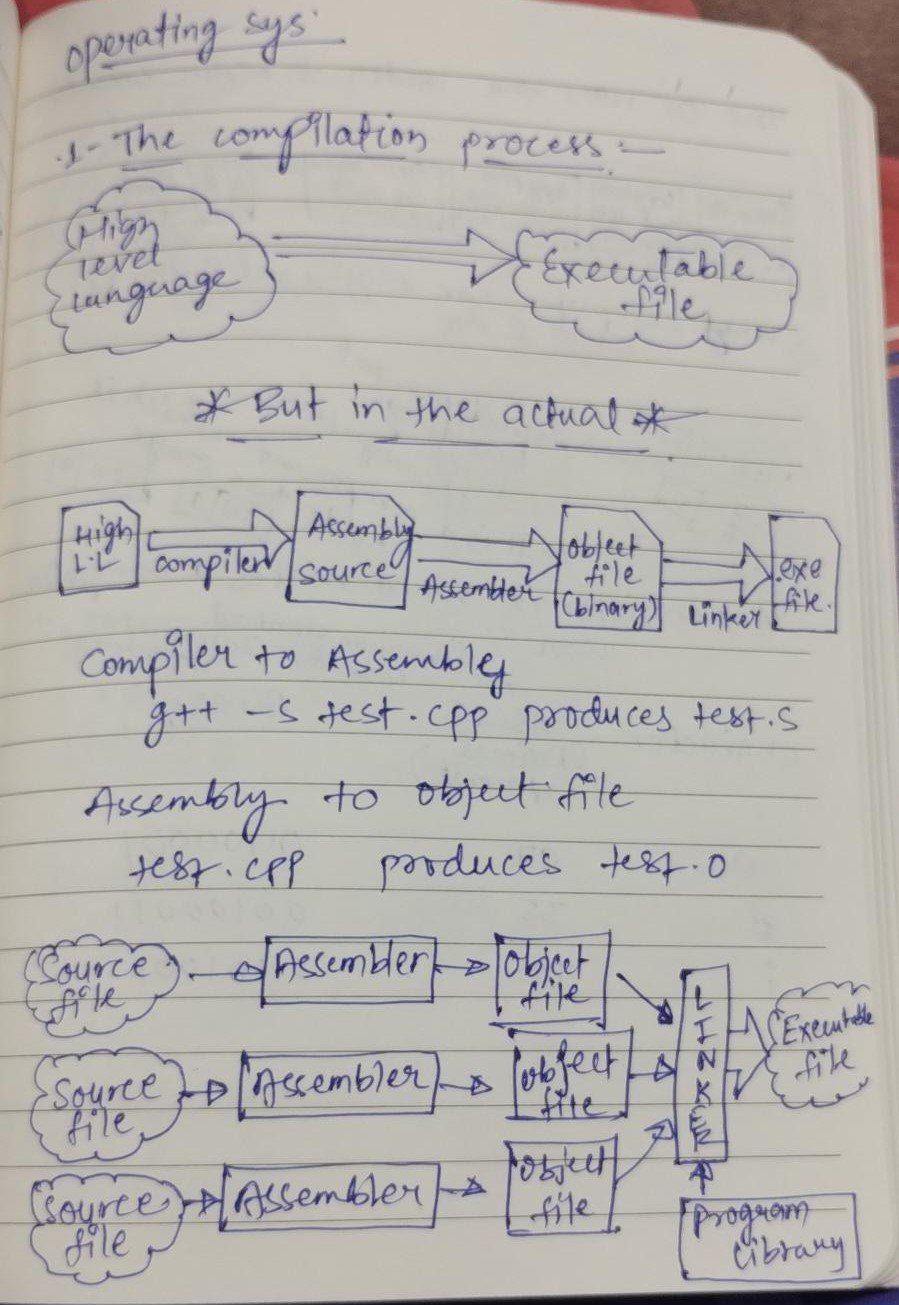 operating sys.
.1- The compilation process :-
High
level
language
Executable
file
* But in the actual *
High
L.L
compiler
Assembly
source
Assembler
object
file
(binary)
Linker
.exe
file.
Compiler to Assembly
g++ -s test.cpp produces test.s
Assembly to object file
test.cpp produces test.o
Source
file
Assembler
Object
file
LINKER
Executable
file
Source
file
Assembler
object
file
Source
file
Assembler
object
file
program
library